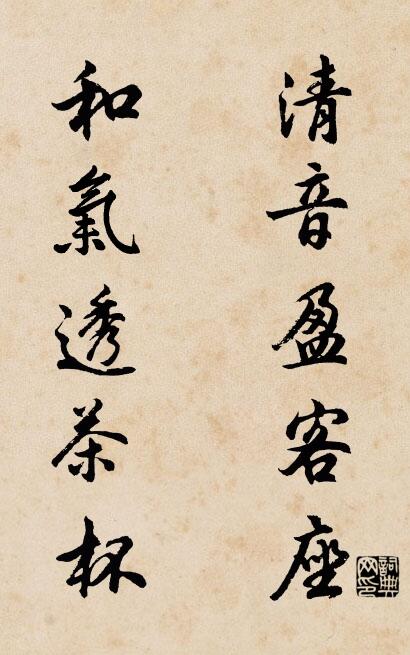 清音盈客座
和氣透茶杯
詞典網印